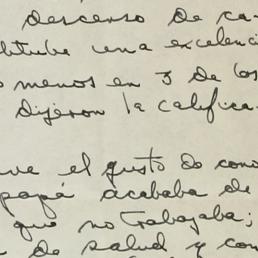 descenso de ca-
obtube una excelenci
menos en 3 de los
dijeron la califica-
ve el gusto de cono
papá acababa de
que no trabajaba;
de salud y con